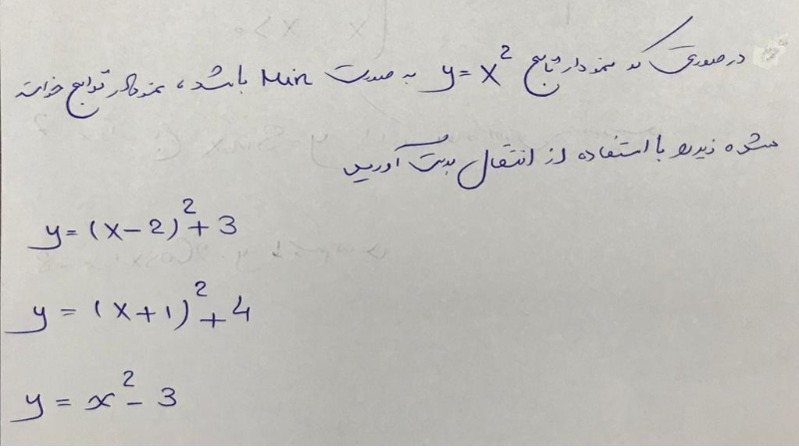 در صورتی که نمودار تابع y = x² به صورت Min باشد، نمودار توابع خواسته
شده زیر را با استفاده از انتقال بدست آورید
y = (x-2)² + 3
y = (x+1)² + 4
y = x² - 3